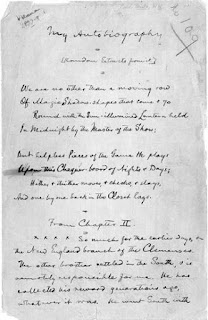 My Autobiography
(Random Extracts from it)
We are no other than a moving row
Of Magic Shadow-shapes that come & go
Round with the Sun-illumined Lantern held
In Midnight by the Master of the Show;
But helpless Pieces of the Game He plays
Upon this Chequer-board of Nights & Days;
Hither & thither moves, & checks, & slays,
And one by one back in the Closet lays.
From Chapter II
x x x x So much for the earlier days, &
the New England branch of the Clemenses.
The other brother settled in the South, & is
remotely responsible for me. He has
collected his reward generations ago,
whatever it was. He went South with